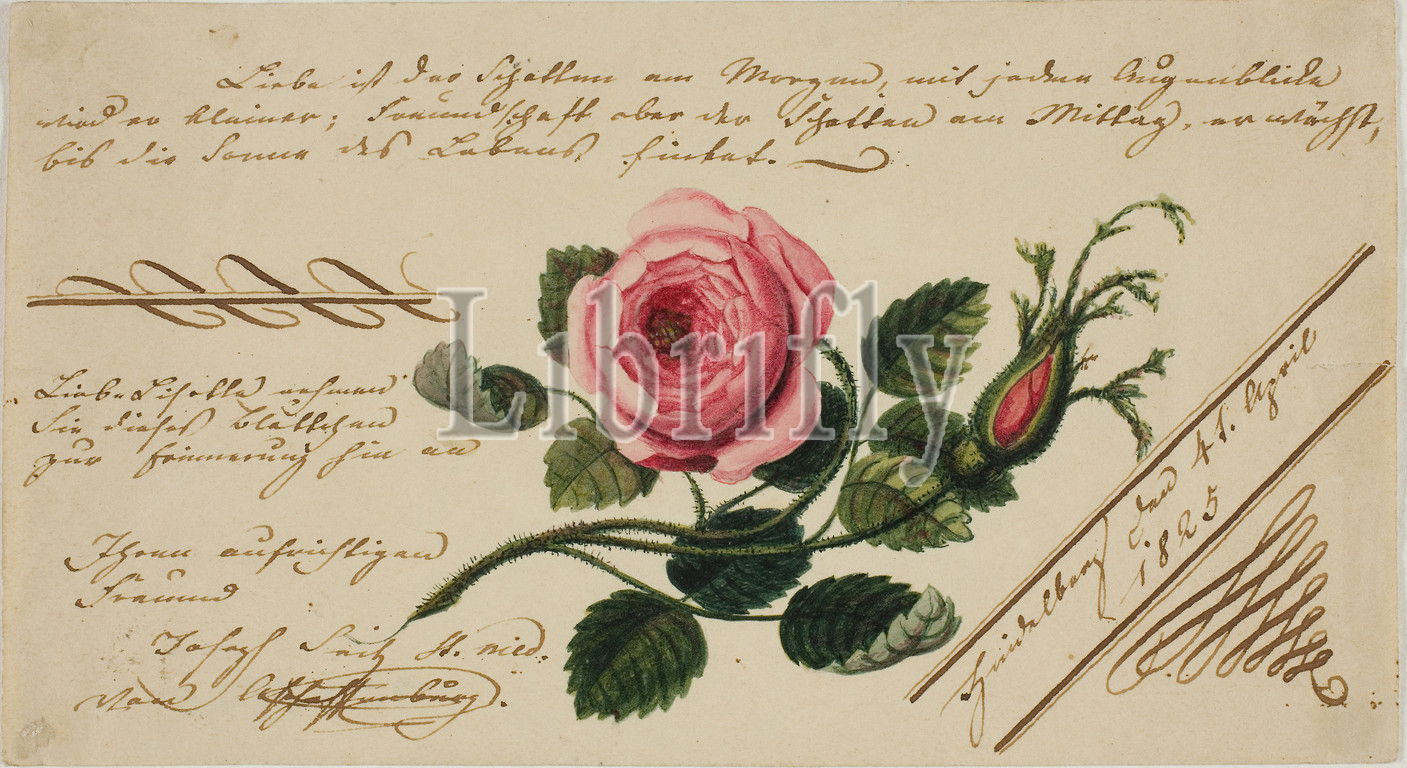 Liebe ist der Schatten am Morgen, mit jedem Augenblicke
wird er kleiner; Freundschaft aber der Schatten am Mittag, er wächst,
bis die Sonne des Lebens sinket.
Liebe Lisette nehmen
Sie dieses Blättchen
zur Erinnerung hin an
Ihren aufrichtigen
Freund
Joseph st. med.
von Aschaffenburg.
Heidelberg den April
1825
Librifly